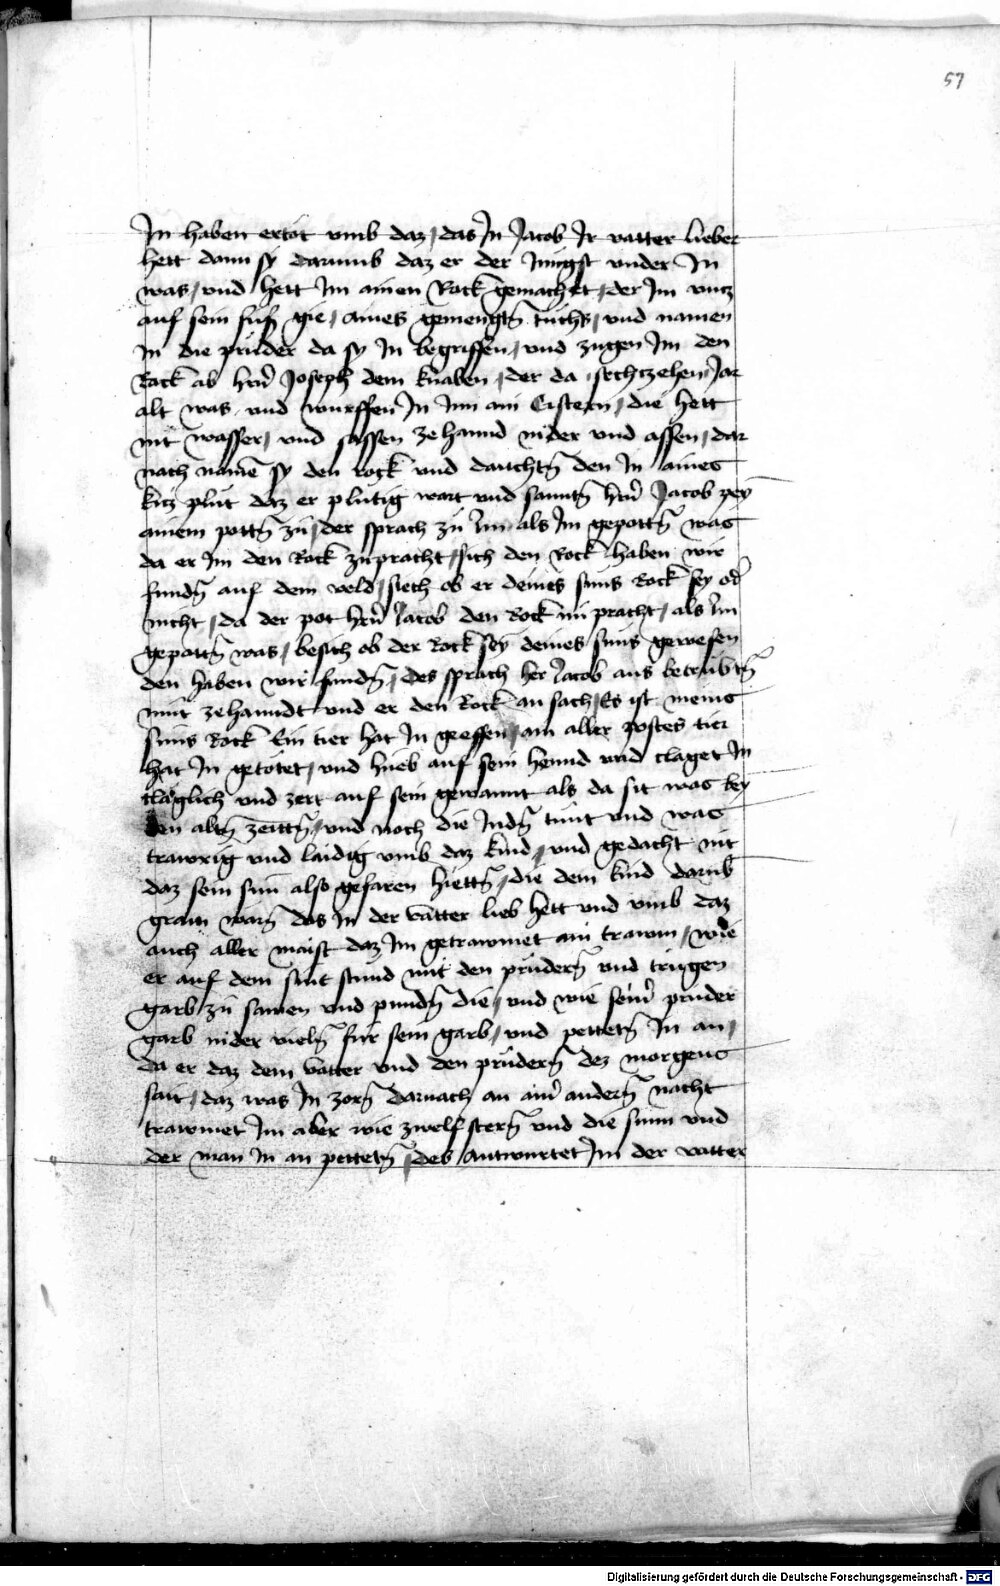 57
In haben ertöt vmb daz / das In Jacob Ir vatter lieber
hett dann sy darumb daz er der Jungst vnder In
was / vnd hett Im ainen Rock gemachet / der Im vncz
auf sein füß gie / aines gemengtn̄ tuchs / vnd namen
In die prüder da sy In begriffen / vnd zugen Im den
Rock ab hern̄ Joseph dem knaben / der da sechczehen Jar
alt was vnd wurffen In Inn ain Cistern / die hett
nit wasser / vnd sassen zehannd nider vnd assen / dar
nach namē sy den rock vnd dauchtn̄ den In aines
kicz plut daz er plutig wart vnd santtn̄ hern̄ Jacob pey
ainem pottn̄ zu / der sprach zu Im als Im gepottn̄ was
da er Im den Rock zupracht / sich den Rock haben wir
fundn̄ auf dem veld / siech ob er deines suns Rock sey od̄
nicht / da der pot hern̄ Jacob den Rock im pracht / als Im
gepottn̄ was / besich ob der Rock sey deines suns gewesen
den haben wir fundn̄ / des sprach her Jacob aus betrubtn̄
mut zehanndt vnd er den Rock an sach / Es ist meins
suns Rock Ein tier hat In geessen / ain aller postes tier
hat In getötet / vnd hueb auf sein hennd vnd claget In
cläglich vnd zert auf sein gewannt als da sit was bey
den altn̄ zeittn̄ / vnd noch die Judn̄ tunt vnd was
trawrig vnd laidig vmb daz kind / vnd gedacht nit
daz sein sun also gefaren hiettn̄ / die dem kind darūb
gram warn̄ das In der vatter lieb hett vnd vmb daz
auch aller maist daz Im getrawmet ain trawm / wie
er auf dem snit stund mit den prüdern̄ vnd trugen
garb zu samen vnd pundn̄ die / vnd wie seiner prüder
garb nider vieln̄ für sein garb / vnd pettetn̄ In an /
da er daz dem vatter vnd den prüdern̄ dez morgens
sait / daz was In zorn̄ darnach an ainer andern̄ nacht
trawmet Im aber wie zwelf stern̄ vnd die sunn vnd
der man In an pettetn̄ / des Antwurtet Im der vatter
Digitalisierung gefördert durch die Deutsche Forschungsgemeinschaft - DFG